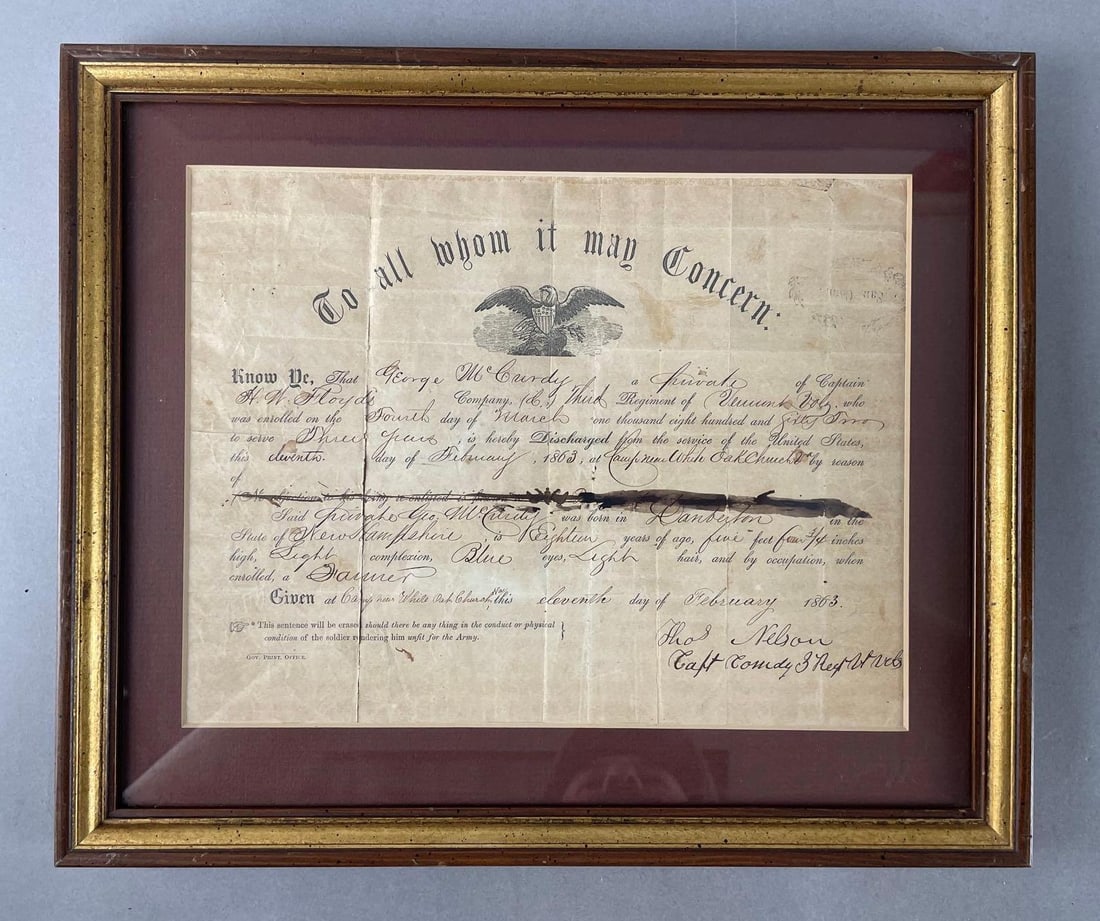 To all whom it may Concern:
Know Ye, That George McCurdy a private of Captain
H. W. Floyds Company, (C,) Third Regiment of Vermont Vols, who
was enrolled on the Fourth day of March one thousand eight hundred and Sixty Two
to serve Three years, is hereby Discharged from the service of the United States,
this eleventh day of February, 1863, at Camp near White Oak Church Va by reason
of
Said private Geo. McCurdy was born in in the
State of New Hampshire, is Eighteen years of age, five feet four 3/4 inches
high, Light complexion, Blue eyes, Light hair, and by occupation, when
enrolled, a Farmer
Given at Camp near White Oak Church, Va this eleventh day of February 1863.
* This sentence will be erased should there be any thing in the conduct or physical
condition of the soldier rendering him unfit for the Army.
Gov. Print. Office.
Thos Nelson
Capt Comdg 3 Regt Vt Vols